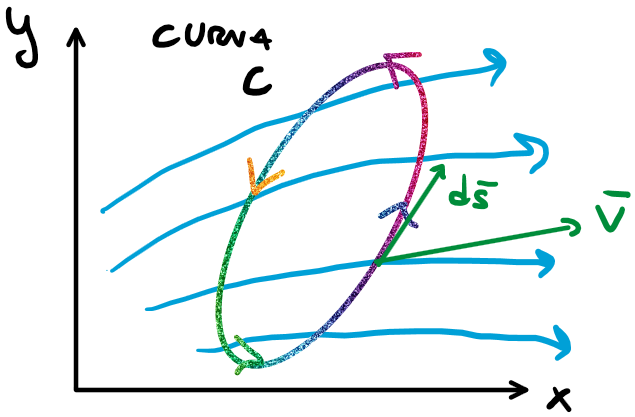 y
CURVA
C
ds̄
V̄
x